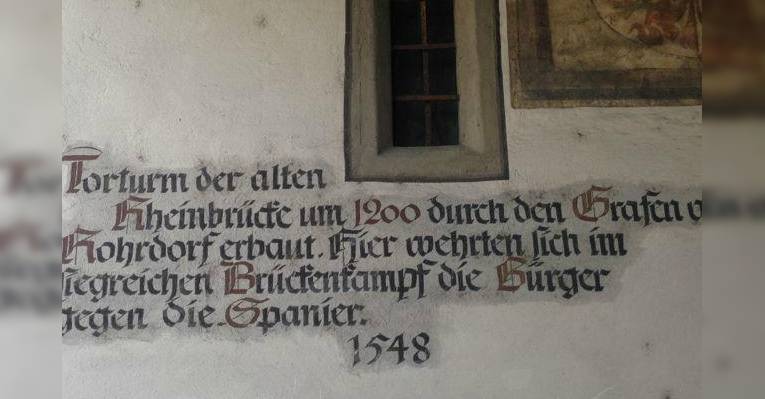 Torturm der alten
Rheinbrücke um 1200 durch den Grafen v
Rohrdorf erbaut. Hier wehrten sich im
siegreichen Brückenkampf die Bürger
gegen die Spanier.
1548